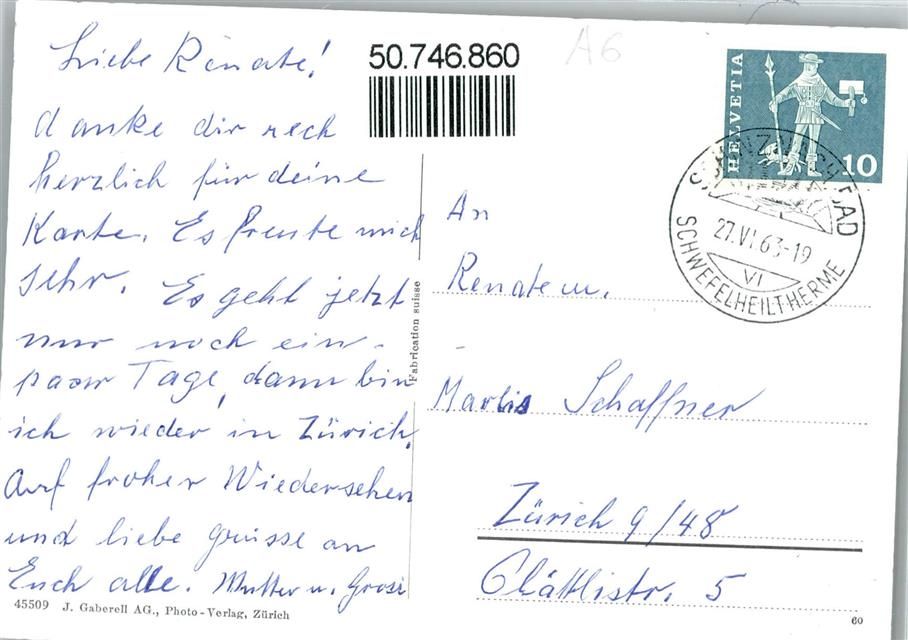 Liebe Renate!
danke dir rech
herzlich für deine
Karte. Es freute mich
sehr. Es geht jetzt
nur noch ein-
paar Tage, dann bin
ich wieder in Zürich.
Auf froher Wiedersehen
und liebe grüsse an
Euch alle. Mutter u. Grosi
45509 J. Gaberell AG., Photo-Verlag, Zürich
50.746.860
A6
Fabrication suisse
HELVETIA
10
SCHINZNACH BAD
27.VI.63-19
VI
SCHWEFELHEILTHERME
An
Renate u.
Marlis Schaffner
Zürich 9/48
Glättlistr. 5
60